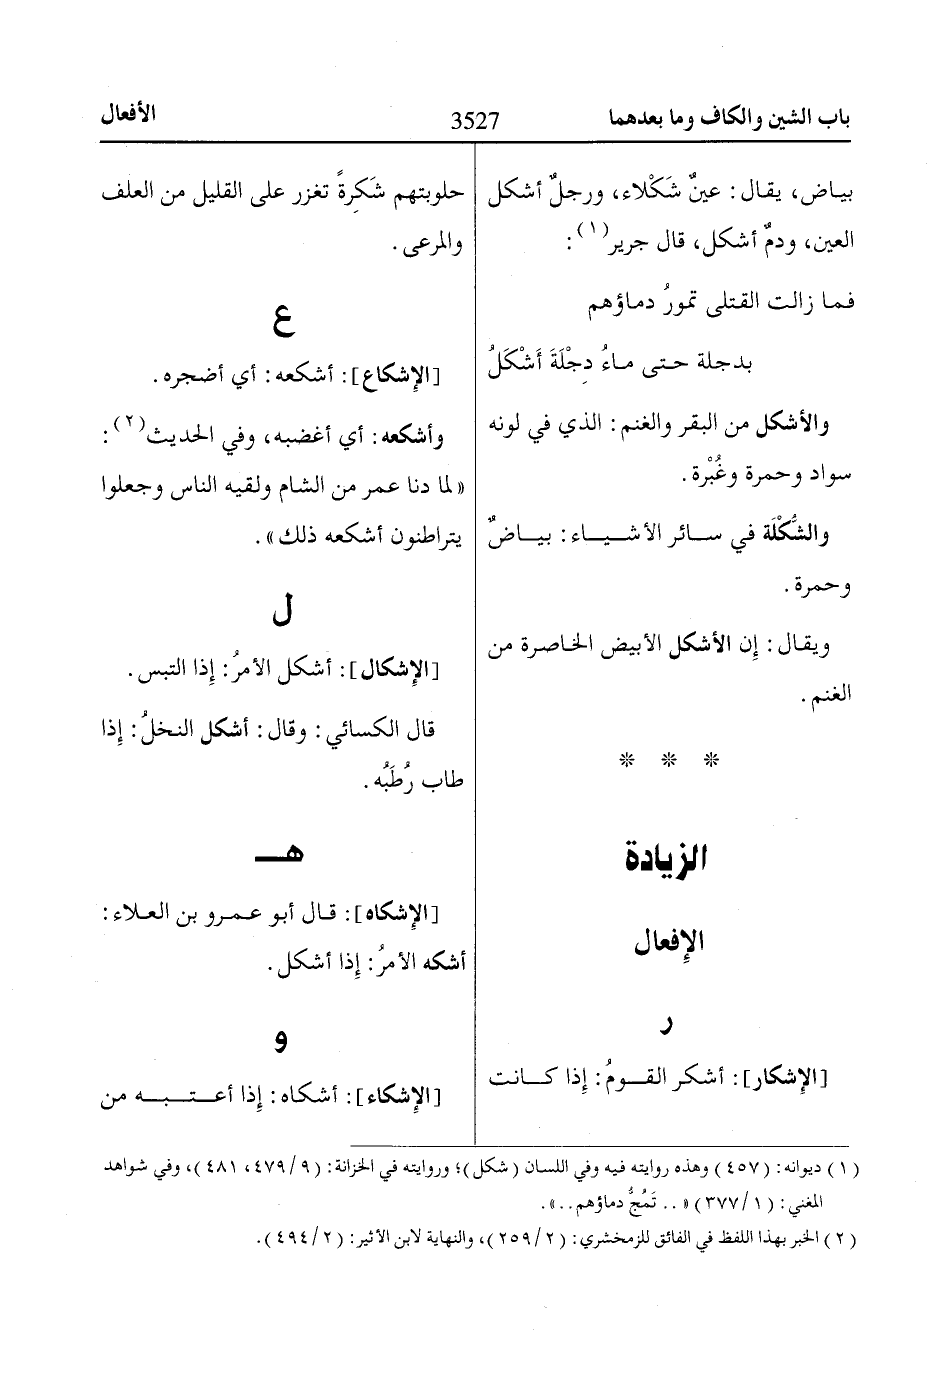 باب الشين والكاف وما بعدهما
3527
الأفعال
بياض، يقال: عينٌ شَكْلاء، ورجلٌ أشكل
العين، ودمٌ أشكل، قال جرير(١):
فما زالت القتلى تمورُ دماؤهم
بدجلة حتى ماءُ دِجْلَةَ أَشْكَلُ
والأشكل من البقر والغنم: الذي في لونه
سواد وحمرة وغُبْرة.
والشُّكْلَة في سائر الأشياء: بياضٌ
وحمرة.
ويقال: إن الأشكل الأبيض الخاصرة من
الغنم.
* * *
الزيادة
الإفعال
ر
[الإشكار]: أشكر القومُ: إذا كانت
حلوبتهم شَكِرةً تغزر على القليل من العلف
والمرعى.
ع
[الإشكاع]: أشكعه: أي أضجره.
وأشكعه: أي أغضبه، وفي الحديث(٢):
«لما دنا عمر من الشام ولقيه الناس وجعلوا
يتراطنون أشكعه ذلك».
ل
[الإشكال]: أشكل الأمرُ: إذا التبس.
قال الكسائي: وقال: أشكل النخلُ: إذا
طاب رُطَبُه.
هـ
[الإشكاه]: قال أبو عمرو بن العلاء:
أشكه الأمرُ: إذا أشكل.
و
[الإشكاء]: أشكاه: إذا أعتبه من
(١) ديوانه: (٤٥٧) وهذه روايته فيه وفي اللسان (شكل)؛ وروايته في الخزانة: (٩/ ٤٧٩، ٤٨١)، وفي شواهد
المغني: (١/ ٣٧٧) «.. تَمُجُّ دماؤهم..».
(٢) الخبر بهذا اللفظ في الفائق للزمخشري: (٢/ ٢٥٩)، والنهاية لابن الأثير: (٢/ ٤٩٤).